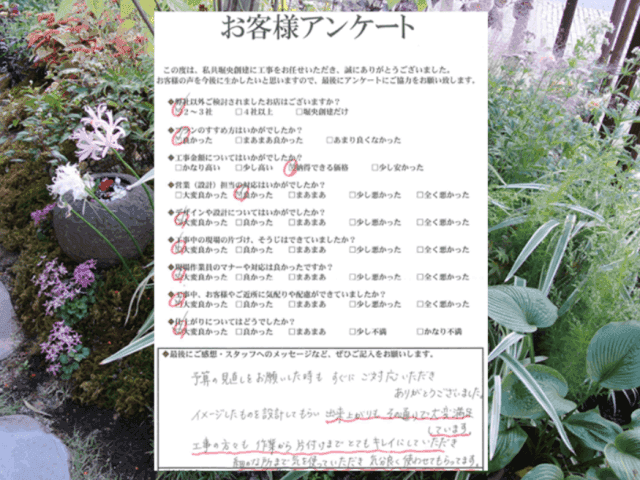 お客様アンケート
この度は、私共堀央創建に工事をお任せいただき、誠にありがとうございました。
お客様の声を今後に生かしたいと思いますので、最後にアンケートにご協力をお願い致します。
◆弊社以外ご検討されましたお店はございますか?
□2～3社 □4社以上 □堀央創建だけ
◆プランのすすめ方はいかがでしたか?
□良かった □まあまあ良かった □あまり良くなかった
◆工事金額についてはいかがでしたか?
□かなり高い □少し高い □納得できる価格 □少し安かった
◆営業(設計)担当の対応はいかがでしたか?
□大変良かった □良かった □まあまあ □少し悪かった □全く悪かった
◆デザインや設計についてはいかがでしたか?
□大変良かった □良かった □まあまあ □少し悪かった □全く悪かった
◆工事中の現場の片づけ、そうじはできていましたか?
□大変良かった □良かった □まあまあ □少し悪かった □全く悪かった
◆現場作業員のマナーや対応は良かったですか?
□大変良かった □良かった □まあまあ □少し悪かった □全く悪かった
◆工事中、お客様やご近所に気配りや配慮ができていましたか?
□大変良かった □良かった □まあまあ □少し悪かった □全く悪かった
◆仕上がりについてはどうでしたか?
□大変良かった □良かった □まあまあ □少し不満 □かなり不満
◆最後にご感想・スタッフへのメッセージなど、ぜひご記入をお願いします。
予算の見直しをお願いした時も すぐに ご対応いただき
ありがとうございました。
イメージしたものを設計してもらい 出来上がりも その通りで大変満足
しています。
工事の方々も 作業から 片付けまで とてもキレイにしていただき
細かな所まで気を使っていただき 気分良く 使わせてもらってます。